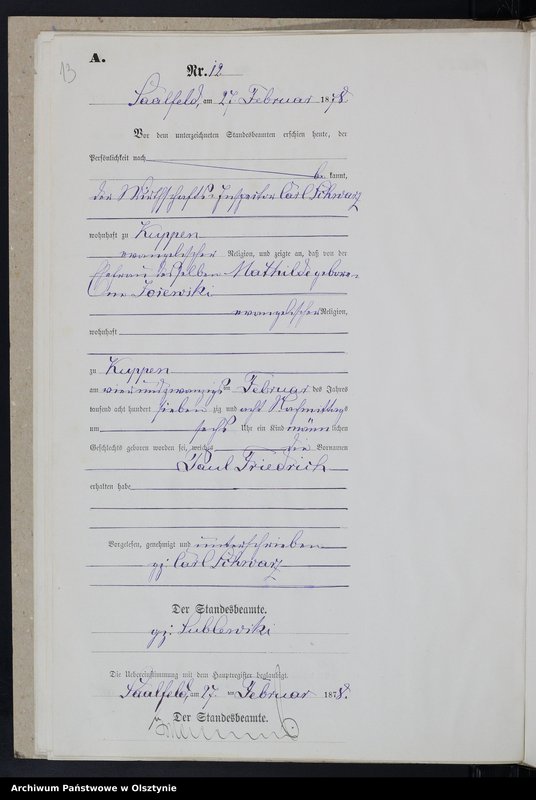 13
A.
Nr. 12
Saalfeld, am 27 Februar 1878.
Vor dem unterzeichneten Standesbeamten erschien heute, der
Persönlichkeit nach
be kannt,
der Wirthschafts-Inspector Carl Schwarz
wohnhaft zu Kuppen
evangelischer Religion, und zeigte an, daß von der
Ehefrau desselben Mathilde gebore-
ne
evangelischer Religion,
wohnhaft
zu Kuppen
am vierundzwanzigsten Februar des Jahres
tausend acht hundert sieben zig und acht Nachmittags
um sechs Uhr ein Kind männ lichen
Geschlechts geboren worden sei, welches die Vornamen
Paul Friedrich
erhalten habe
Vorgelesen, genehmigt und unterschrieben
gz: Carl Schwarz
Der Standesbeamte.
gz: Sublewski
Die Uebereinstimmung mit dem Hauptregister beglaubigt.
Saalfeld, am 27. ten Februar 1878.
Der Standesbeamte.
Archiwum Państwowe w Olsztynie